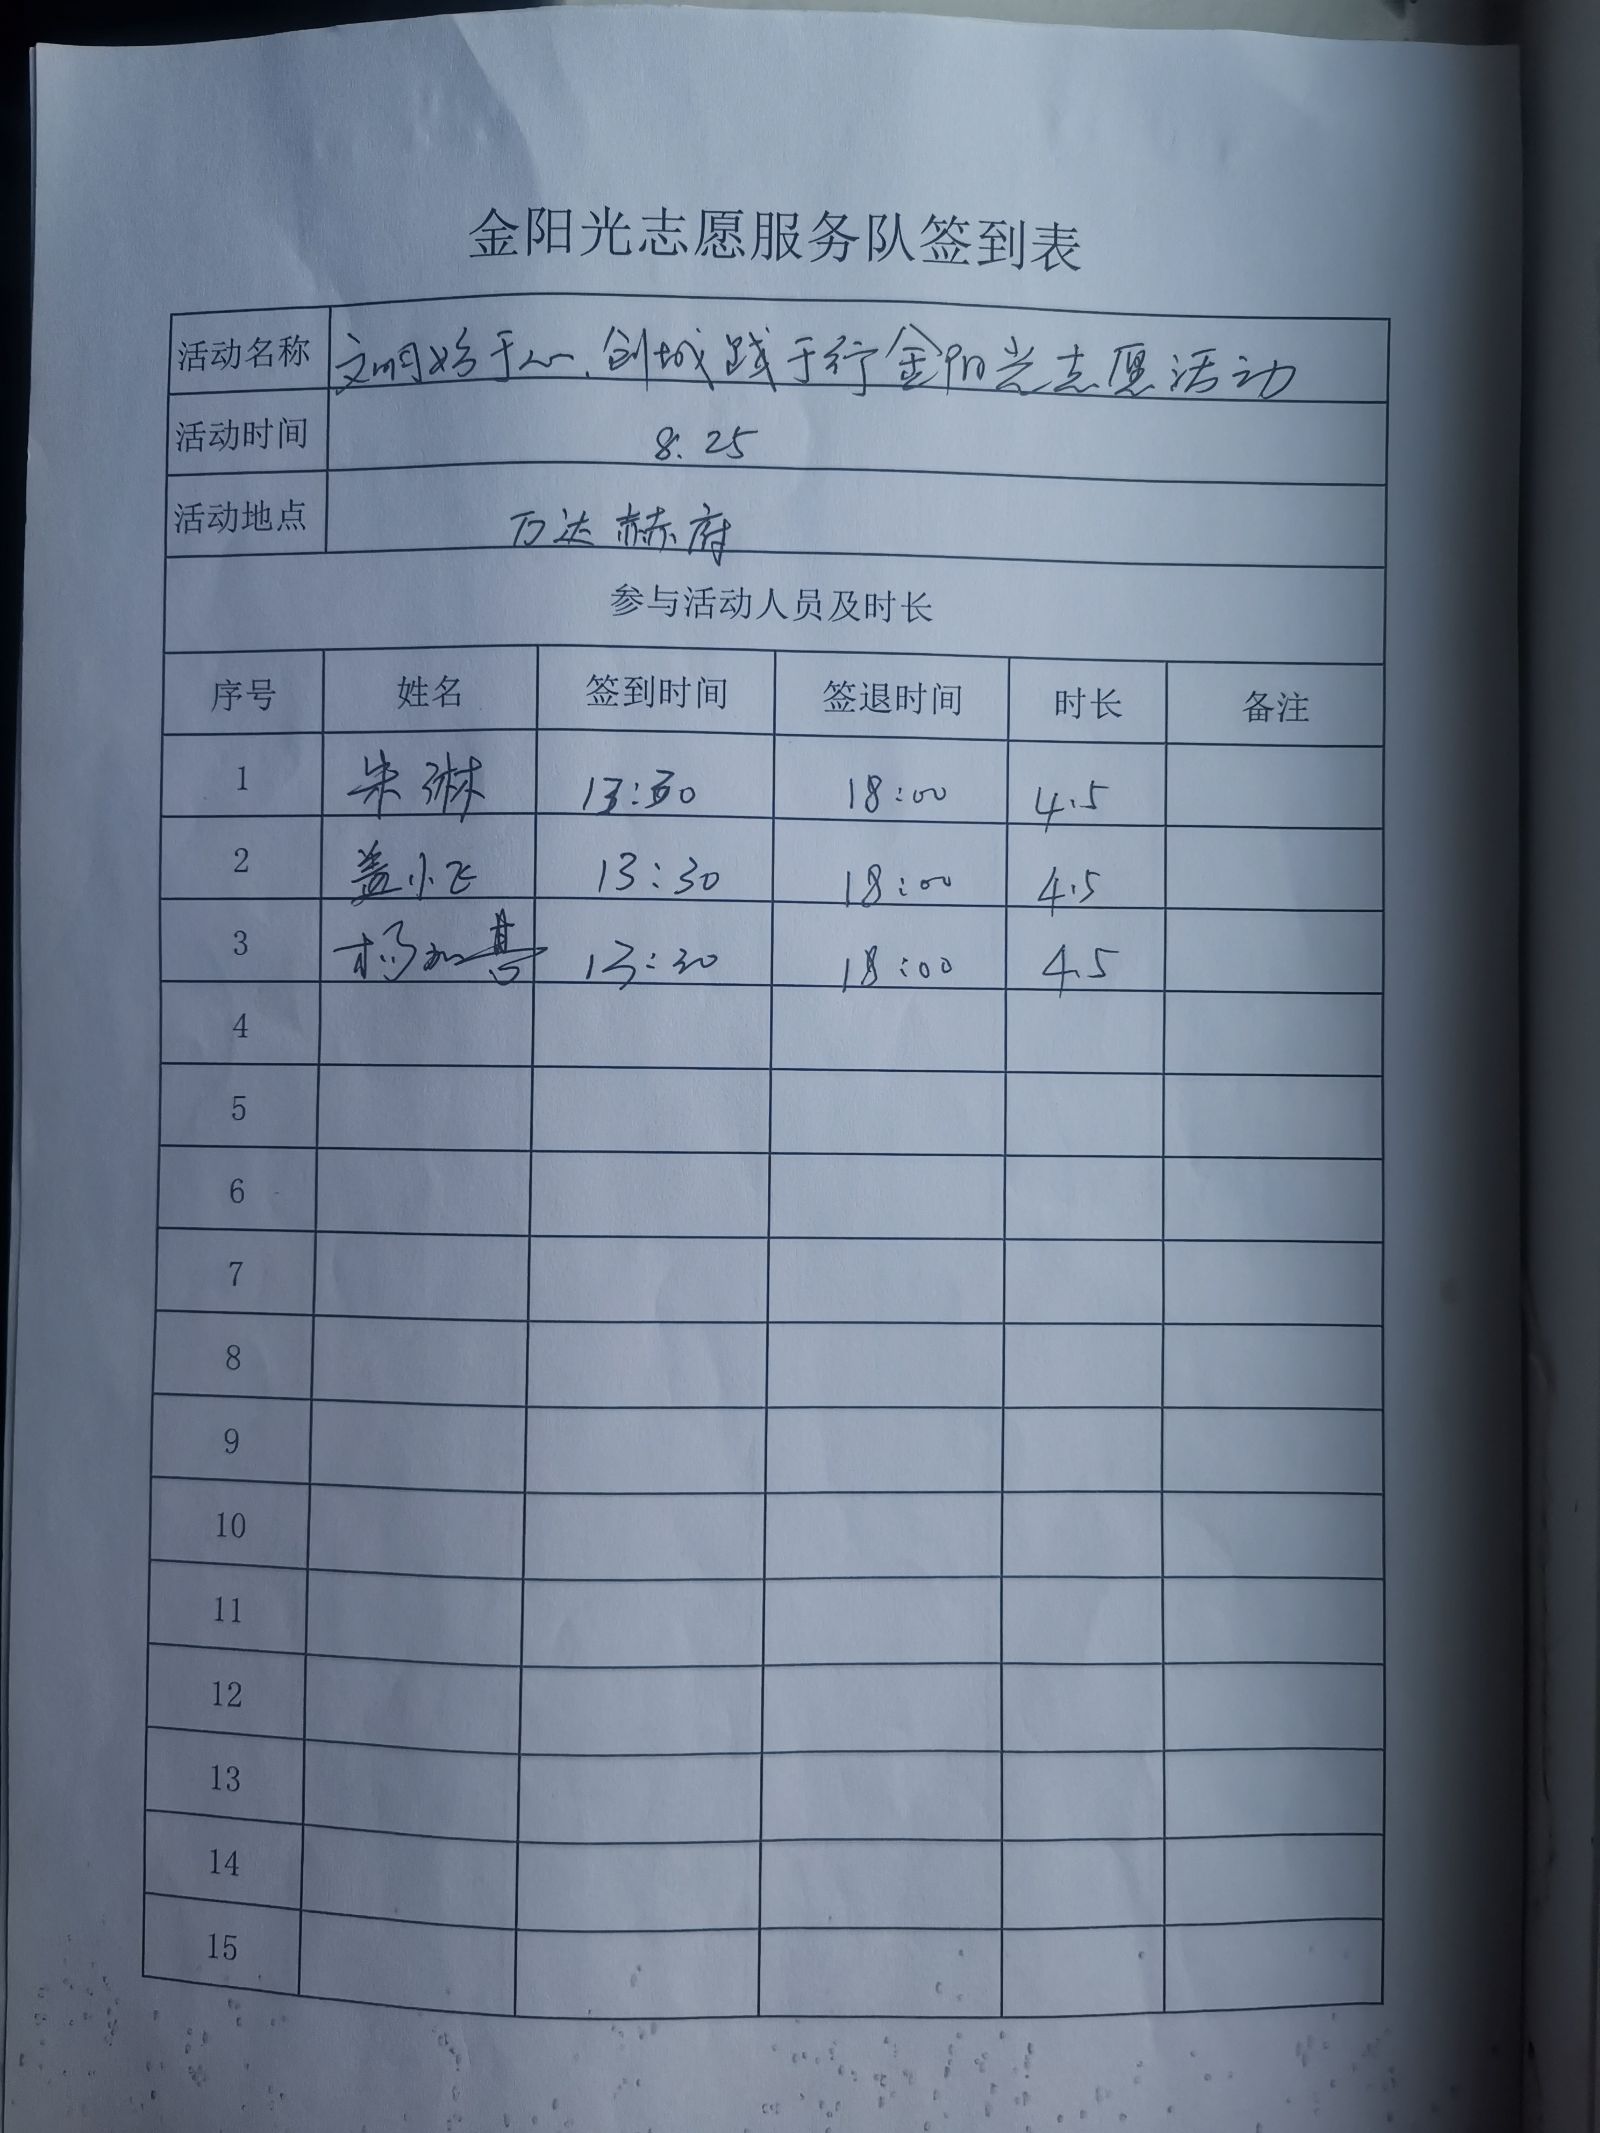 金阳光志愿服务队签到表
活动名称 文明始于心、创城践于行金阳光志愿活动
活动时间 8.25
活动地点 万达赫府
参与活动人员及时长
序号 姓名 签到时间 签退时间 时长 备注
1 朱琳 13:30 18:00 4.5
2 盖小飞 13:30 18:00 4.5
3 杨 13:30 18:00 4.5
4
5
6
7
8
9
10
11
12
13
14
15